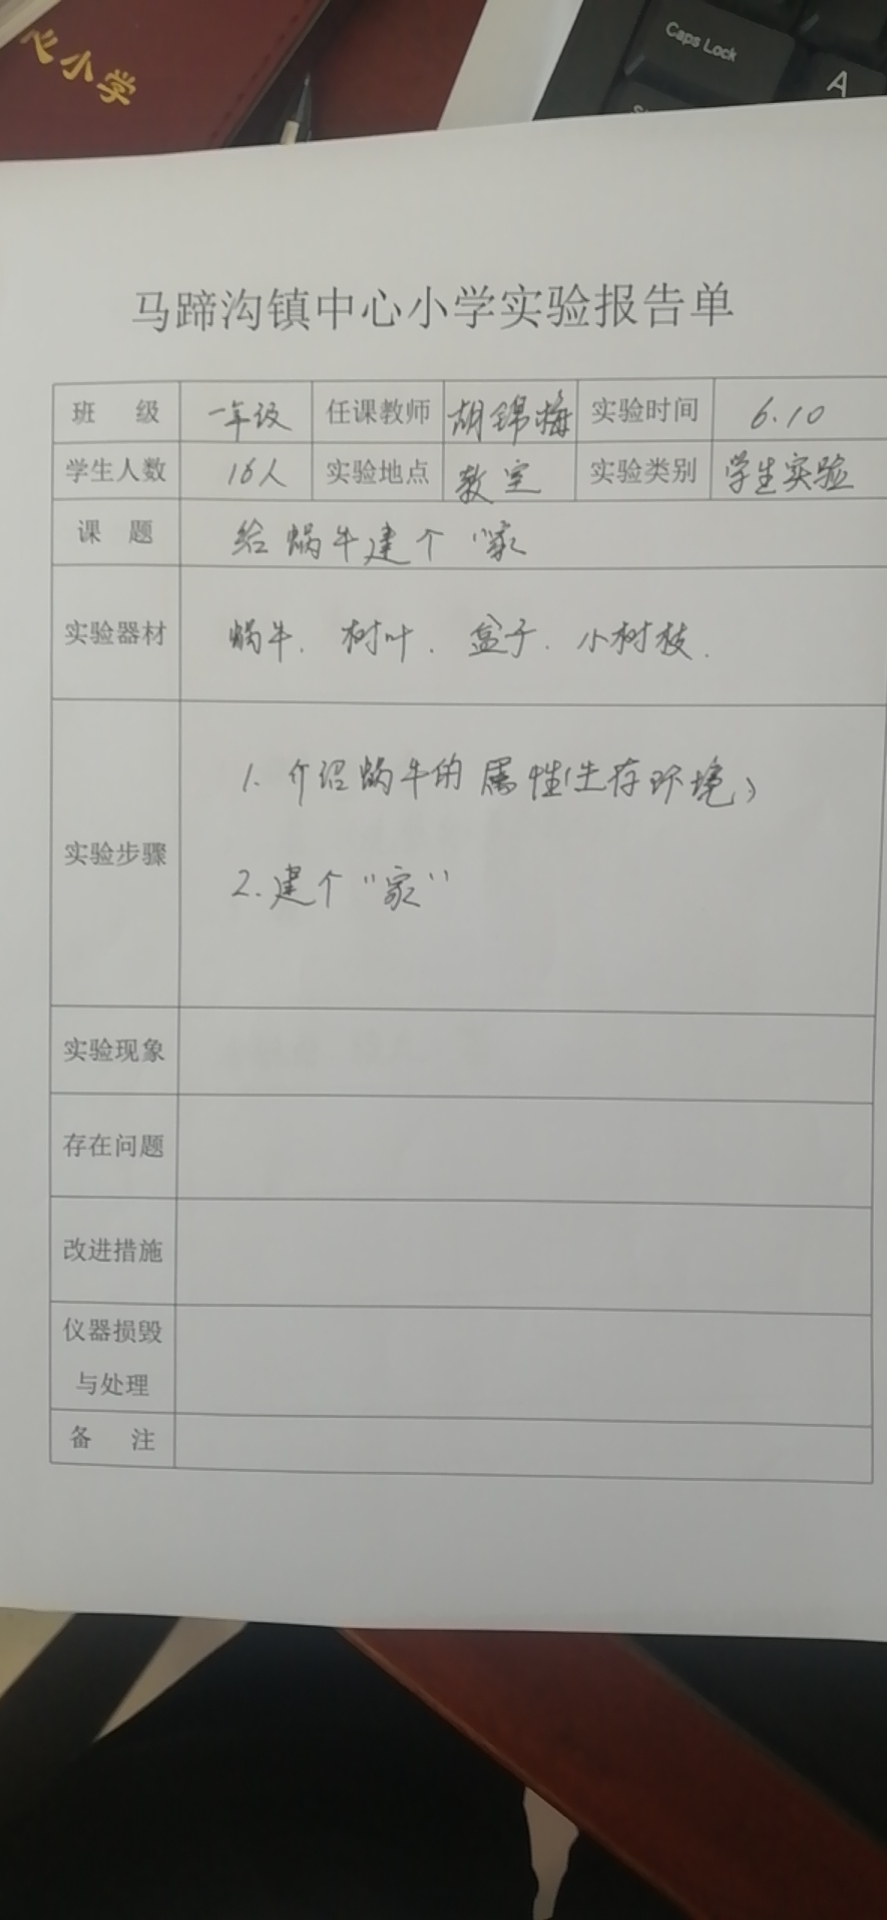 小学
Caps Lock
A
马蹄沟镇中心小学实验报告单
班 级 一年级 任课教师 胡锦梅 实验时间 6.10
学生人数 16人 实验地点 教室 实验类别 学生实验
课 题 给蜗牛建个“家
实验器材 蜗牛. 树叶. 盒子. 小树枝.
1. 介绍蜗牛的属性(生存环境)
实验步骤
2. 建个“家”
实验现象
存在问题
改进措施
仪器损毁
与处理
备 注